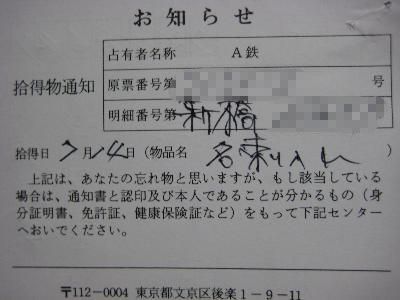 お知らせ
拾得物通知
占有者名称 A鉄
原票番号第 号
明細番号第 新橋
拾得日 7月14日(物品名 名刺入れ )
上記は、あなたの忘れ物と思いますが、もし該当している
場合は、通知書と認印及び本人であることが分かるもの(身
分証明書、免許証、健康保険証など)をもって下記センター
へおいでください。
〒112-0004 東京都文京区後楽1-9-11